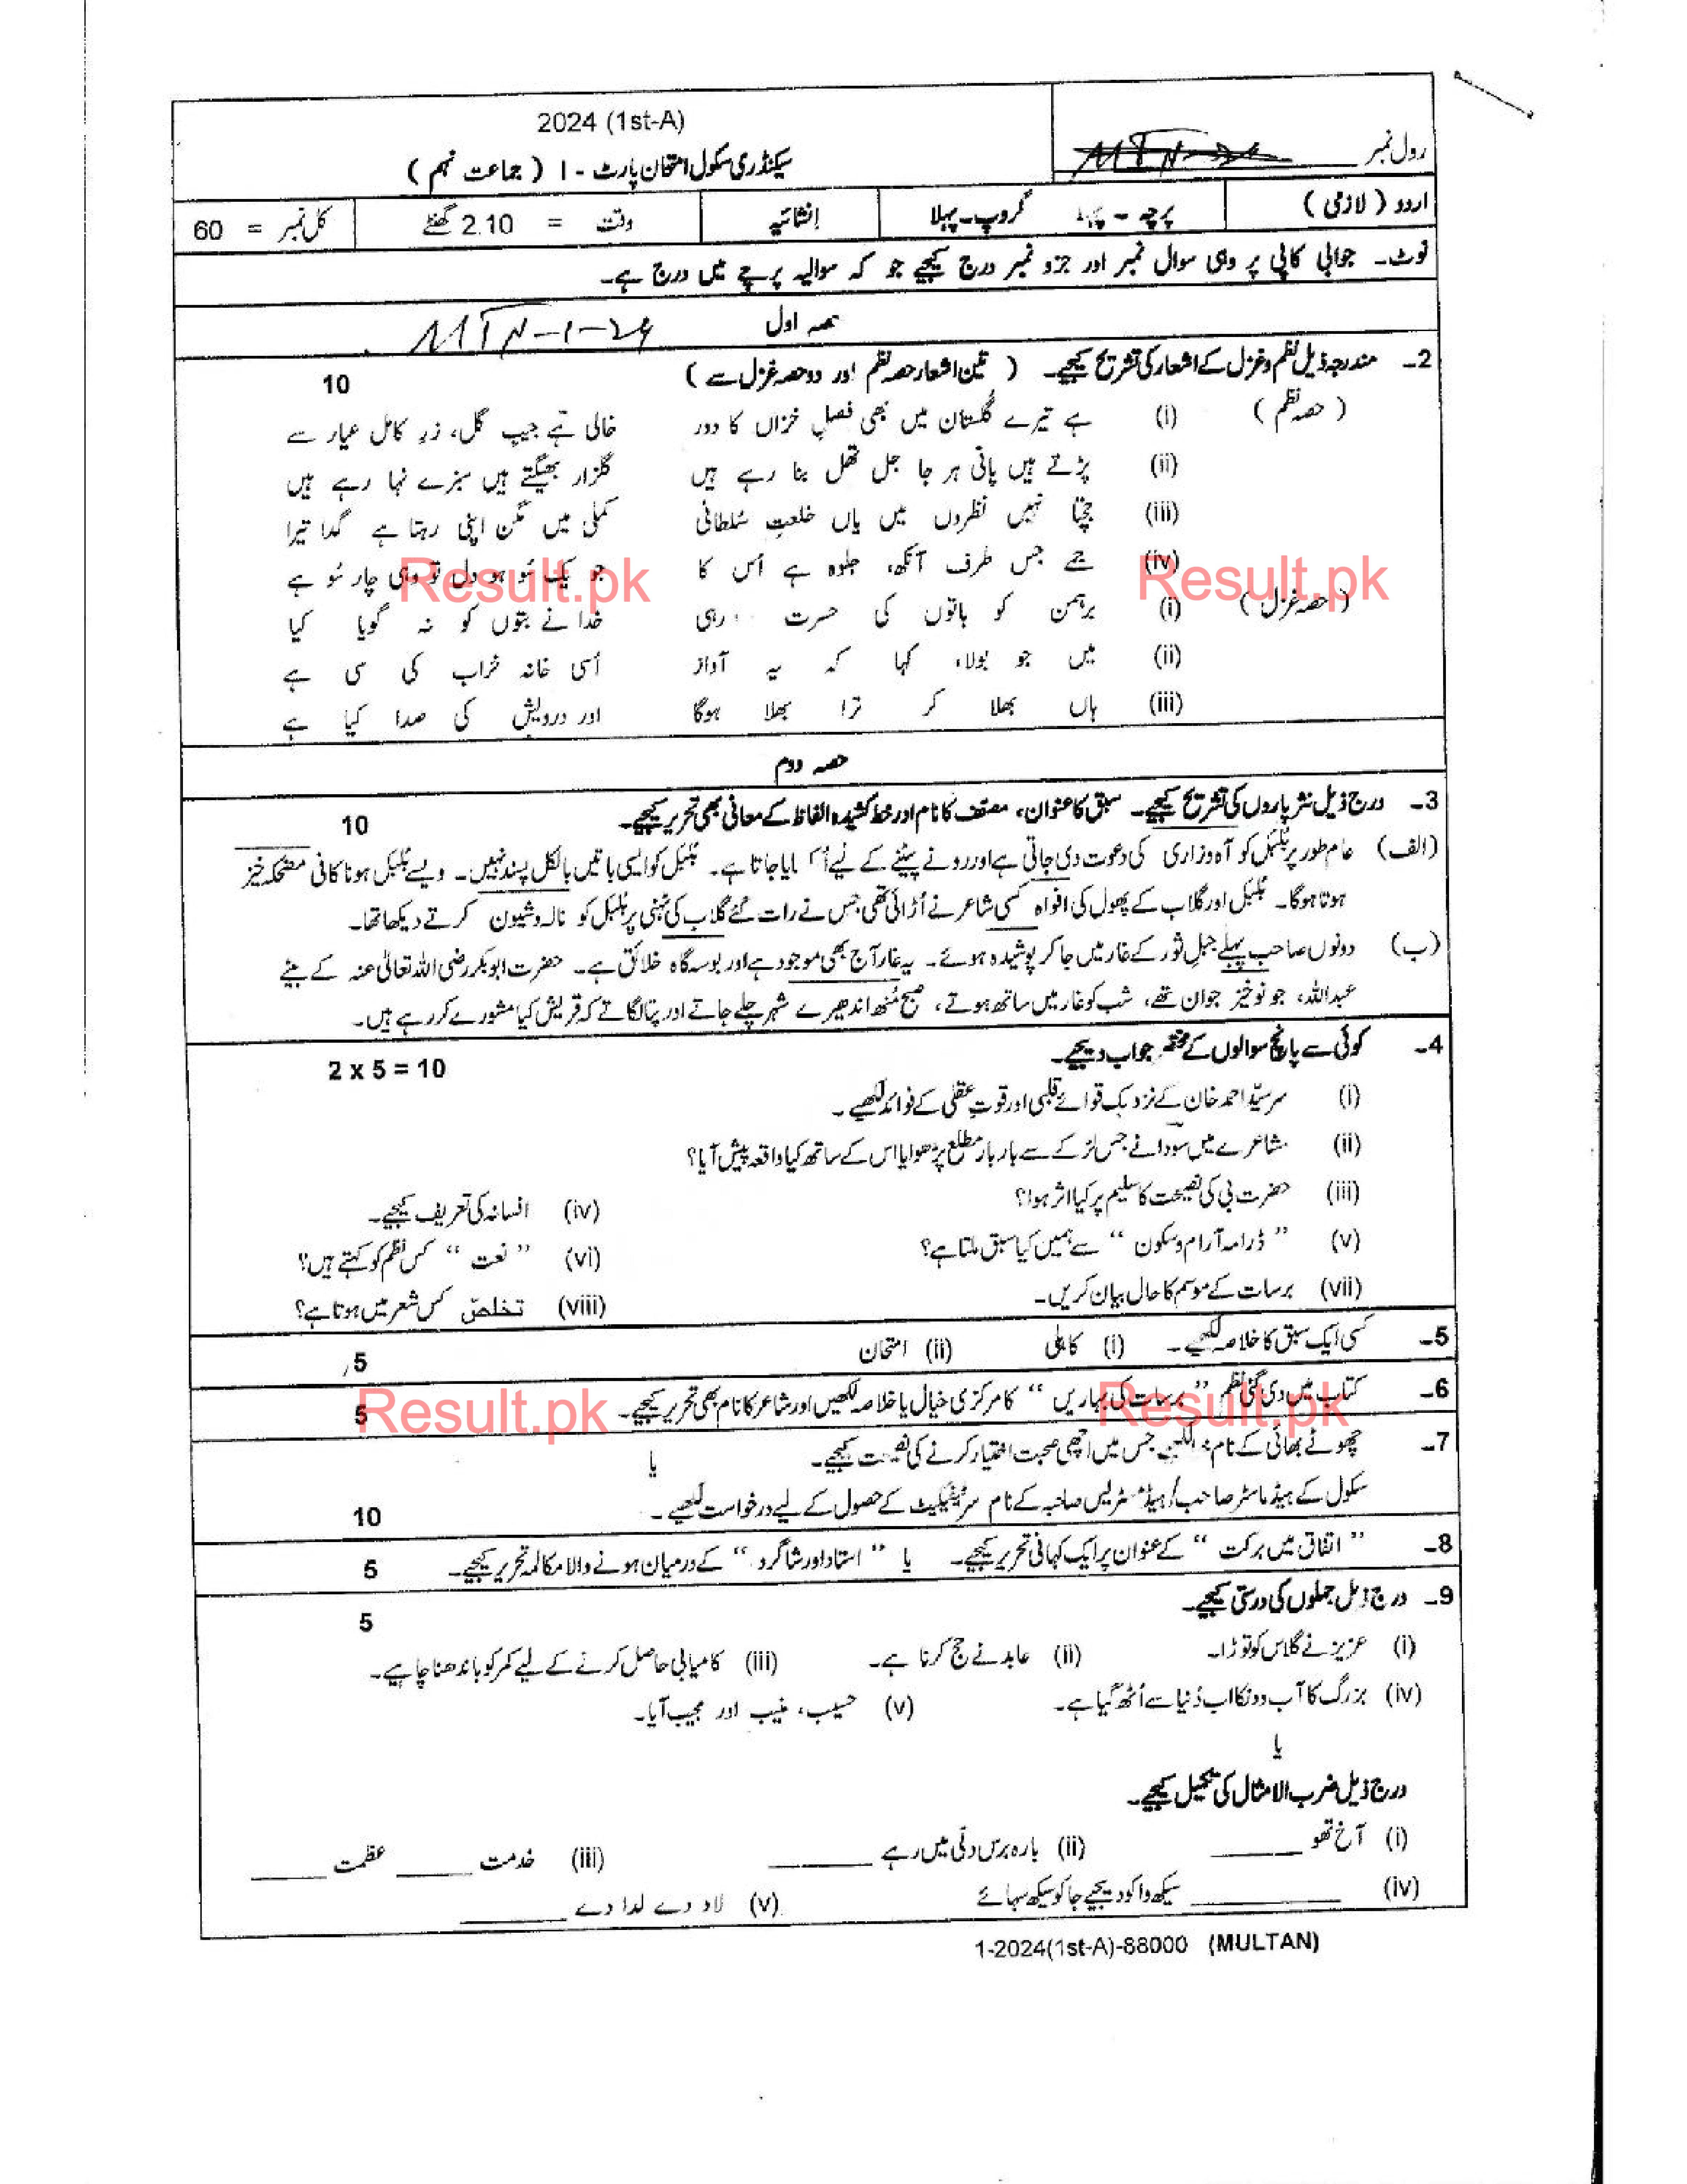 2024 (1st-A)
رول نمبر
سیکنڈری سکول امتحان پارٹ - I ( جماعت نہم )
اردو ( لازمی ) پرچہ - پہلا گروپ۔پہلا اِنشائیہ وقت = 2.10 گھنٹے کل نمبر = 60
نوٹ۔ جوابی کاپی پر وہی سوال نمبر اور جزو نمبر درج کیجیے جو کہ سوالیہ پرچے میں درج ہے۔
حصہ اول MTN-1-24
2۔ مندرجہ ذیل نظم و غزل کے اشعار کی تشریح کیجیے۔ ( تین اشعار حصہ نظم اور دو حصہ غزل سے ) 10
( حصہ نظم ) (i) ہے تیرے گلستان میں بھی فصلِ خزاں کا دور خالی ہے جیبِ گل، زرِ کامل عیار سے
(ii) پڑتے ہیں پانی ہر جا جل تھل بنا رہے ہیں گلزار بھیگتے ہیں سبزے نہا رہے ہیں
(iii) جچتا نہیں نظروں میں یاں خلعتِ سُلطانی کملی میں مگن اپنی رہتا ہے گدا تیرا
(iv) جمے جس طرف آنکھ، جلوہ ہے اُس کا جو یک سُو ہو دل تو وہی چار سُو ہے
( حصہ غزل ) (i) برہمن کو باتوں کی حسرت رہی خدا نے بتوں کو نہ گویا کیا
(ii) میں جو بولا، کہا کہ یہ آواز اُسی خانہ خراب کی سی ہے
(iii) ہاں بھلا کر ترا بھلا ہوگا اور درویش کی صدا کیا ہے
حصہ دوم
3۔ درج ذیل نثر پاروں کی تشریح کیجیے۔ سبق کا عنوان، مصنف کا نام اور خط کشیدہ الفاظ کے معانی بھی تحریر کیجیے۔ 10
(الف) عام طور پر بُلبُل کو آہ و زاری کی دعوت دی جاتی ہے اور رونے پیٹنے کے لیے اُکسایا جاتا ہے۔ بُلبُل کو ایسی باتیں بالکل پسند نہیں۔ ویسے بُلبُل ہونا کافی مضحکہ خیز
ہوتا ہوگا۔ بُلبُل اور گلاب کے پھول کی افواہ کسی شاعر نے اُڑائی تھی جس نے رات گئے گلاب کی ٹہنی پر بُلبُل کو نالہ و شیون کرتے دیکھا تھا۔
(ب) دونوں صاحب پہلے جبلِ ثور کے غار میں جا کر پوشیدہ ہوئے۔ یہ غار آج بھی موجود ہے اور بوسہ گاہ خلائق ہے۔ حضرت ابوبکر رضی اللہ تعالیٰ عنہ کے بیٹے
عبداللہ، جو نوخیز جوان تھے، شب کو غار میں ساتھ ہوتے، صبح مُنھ اندھیرے شہر چلے جاتے اور پتا لگاتے کہ قریش کیا مشورے کر رہے ہیں۔
4۔ کوئی سے پانچ سوالوں کے مختصر جواب دیجیے۔ 2 x 5 = 10
(i) سر سیّد احمد خان کے نزدیک قوائے قلبی اور قوتِ عقلی کے فوائد لکھیے۔
(ii) مشاعرے میں سودا نے جس لڑکے سے بار بار مطلع پڑھوایا اس کے ساتھ کیا واقعہ پیش آیا؟
(iii) حضرت بی کی نصیحت کا سلیم پر کیا اثر ہوا؟ (iv) افسانہ کی تعریف کیجیے۔
(v) ” ڈرامہ آرام و سکون “ سے ہمیں کیا سبق ملتا ہے؟ (vi) ” نعت “ کس نظم کو کہتے ہیں؟
(vii) برسات کے موسم کا حال بیان کریں۔ (viii) تخلص کس شعر میں ہوتا ہے؟
5۔ کسی ایک سبق کا خلاصہ لکھیے۔ (i) کاہلی (ii) امتحان 5
6۔ کتاب میں دی گئی نظم ” برسات کی بہاریں “ کا مرکزی خیال یا خلاصہ لکھیں اور شاعر کا نام بھی تحریر کیجیے۔ 5
7۔ چھوٹے بھائی کے نام جس میں اچھی صحبت اختیار کرنے کی نصیحت کیجیے۔
یا
سکول کے ہیڈ ماسٹر صاحب/ہیڈ مسٹریس صاحبہ کے نام سرٹیفکیٹ کے حصول کے لیے درخواست لکھیے۔ 10
8۔ ” اتفاق میں برکت “ کے عنوان پر ایک کہانی تحریر کیجیے۔ یا ” استاد اور شاگرد “ کے درمیان ہونے والا مکالمہ تحریر کیجیے۔ 5
9۔ درج ذیل جملوں کی درستی کیجیے۔ 5
(i) عزیز نے گلاس کو توڑا۔ (ii) عابد نے حج کرنا ہے۔ (iii) کامیابی حاصل کرنے کے لیے کمر کو باندھنا چاہیے۔
(iv) بزرگ کا آب و دنکا اب دُنیا سے اُٹھ گیا ہے۔ (v) حسیب، منیب اور مجیب آیا۔
یا
درج ذیل ضرب الامثال کی تکمیل کیجیے۔
(i) آخ تھو ______ (ii) بارہ برس دلّی میں رہے ______ (iii) خدمت ______ عظمت ______
(iv) ______ سیکھ وا کو دیجیے جا کو سیکھ سہائے (v) لاد دے لدا دے ______
1-2024(1st-A)-88000 (MULTAN)
Result.pk
Result.pk
Result.pk
Result.pk